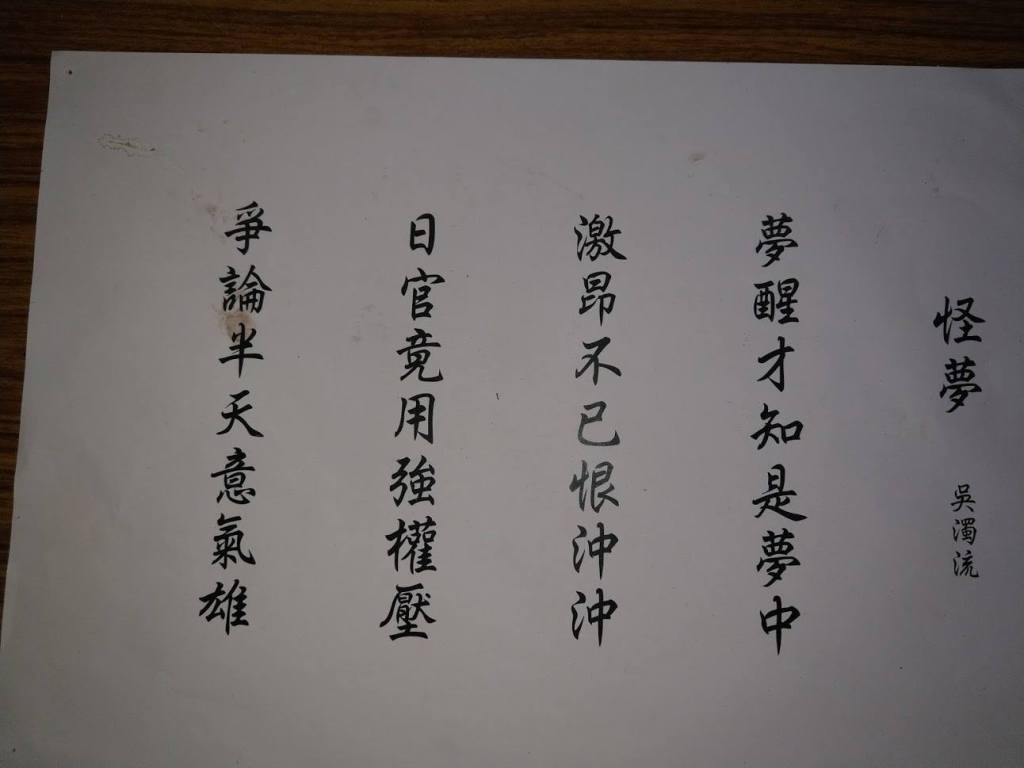 怪夢 吳濁流
夢醒才知是夢中
激昂不已恨沖沖
日官竟用強權壓
爭論半天意氣雄